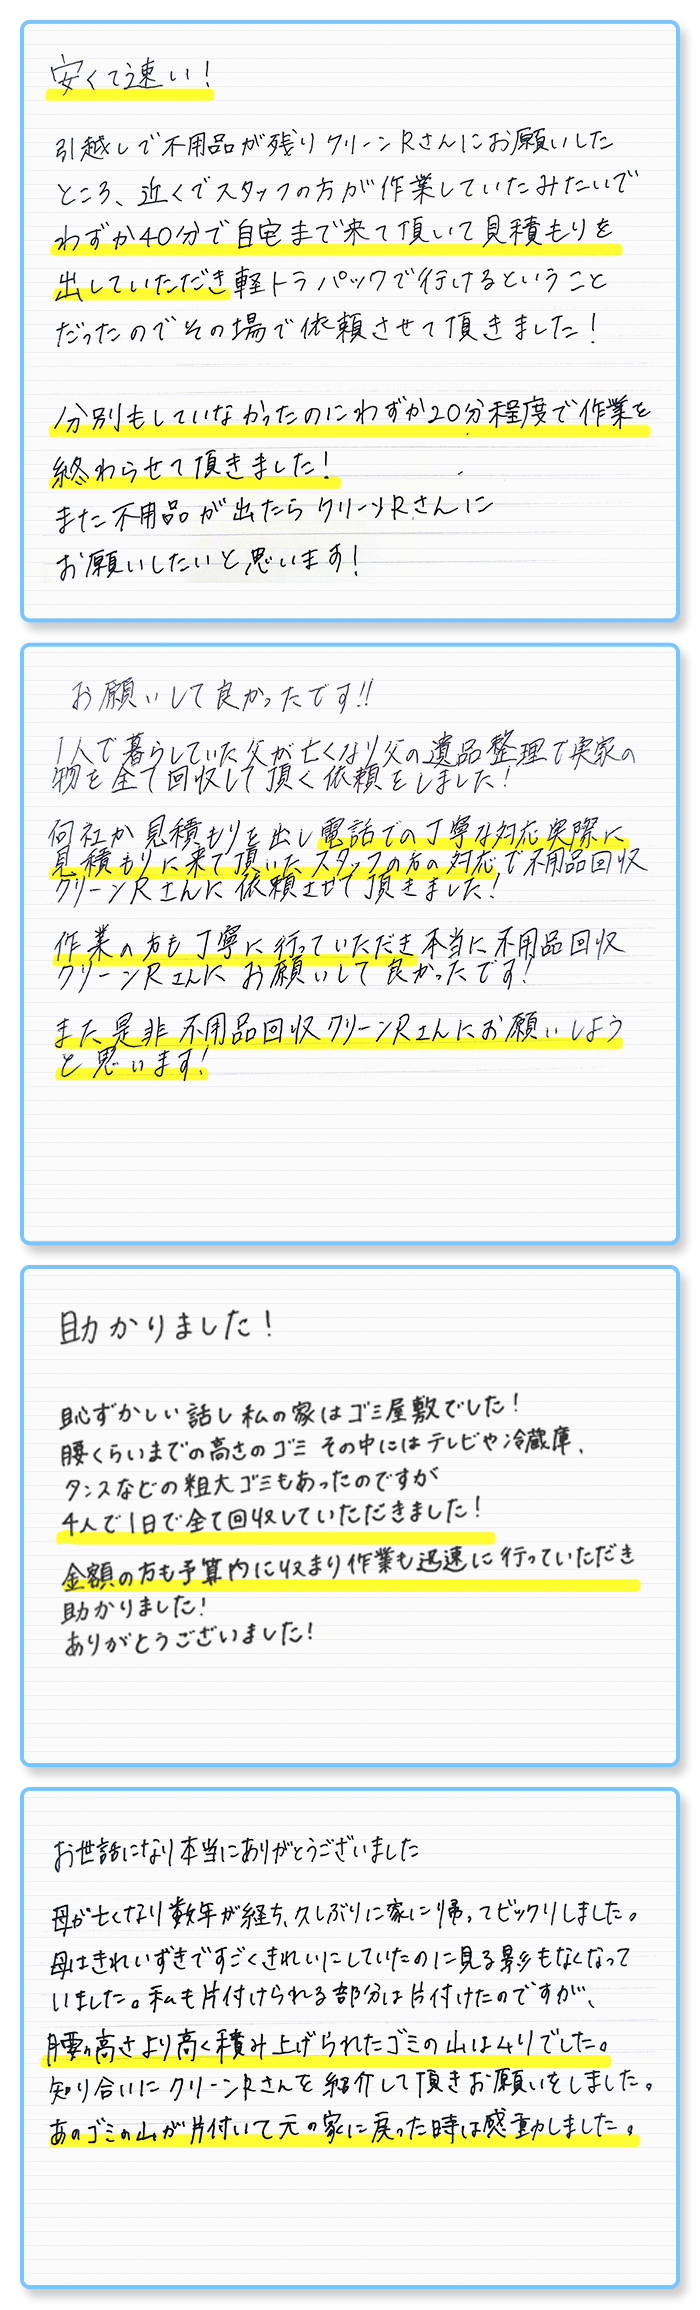 安くて速い！
引越しで不用品が残りクリーンRさんにお願いした
ところ、近くでスタッフの方が作業していたみたいで
わずか40分で自宅まで来て頂いて見積もりを
出していただき軽トラパックで行けるということ
だったのでその場で依頼させて頂きました！
分別もしていなかったのにわずか20分程度で作業を
終わらせて頂きました！
また不用品が出たらクリーンRさんに
お願いしたいと思います！
お願いして良かったです!!
1人で暮らしていた父が亡くなり父の遺品整理で実家の
物を全て回収して頂く依頼をしました！
何社か見積もりを出し電話での丁寧な対応実際に
見積もりに来て頂いたスタッフの方の対応で不用品回収
クリーンRさんに依頼させて頂きました！
作業の方も丁寧に行っていただき本当に不用品回収
クリーンRさんにお願いして良かったです！
また是非不用品回収クリーンRさんにお願いしよう
と思います！
助かりました！
恥ずかしい話し私の家はゴミ屋敷でした！
腰くらいまでの高さのゴミその中にはテレビや冷蔵庫、
タンスなどの粗大ゴミもあったのですが
4人で1日で全て回収していただきました！
金額の方も予算内に収まり作業も迅速に行っていただき
助かりました！
ありがとうございました！
お世話になり本当にありがとうございました
母が亡くなり数年が経ち、久しぶりに家に帰ってビックリしました。
母はきれいずきですごくきれいにしていたのに見る影もなくなって
いました。私も片付けられる部分は片付けたのですが、
腰の高さより高く積み上げられたゴミの山は4りでした。
知り合いにクリーンRさんを紹介して頂きお願いをしました。
あのゴミの山が片付いて元の家に戻った時は感動しました。